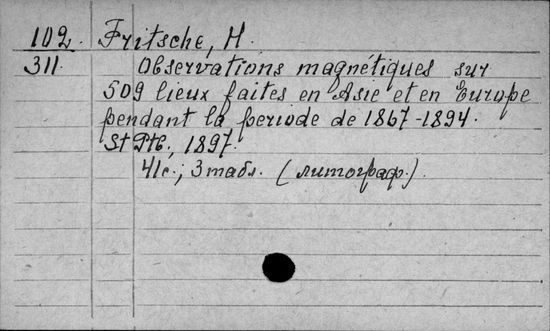 102. Fritsche, H.
311. Observations magnétiques sur
509 lieux faites en Asie et en Europe
pendant la periode de 1867-1894.
St Ptb., 1897.
41 с.; 3 табл. (литограф.)